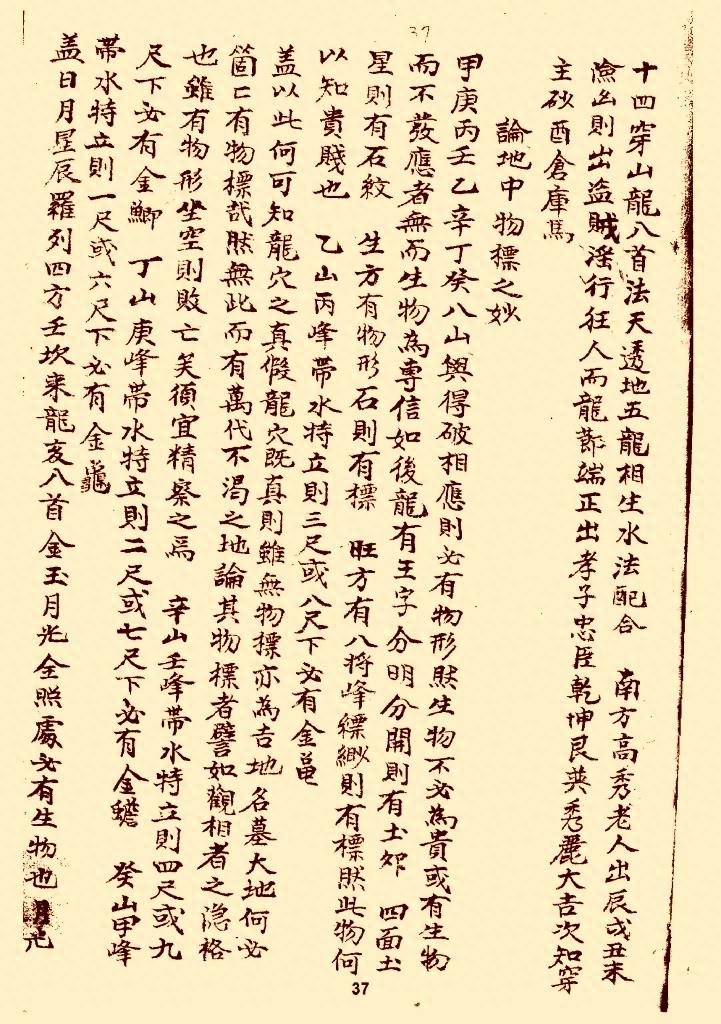 37
十四穿山龍八首法天透地五龍相生水法配合　南方高秀老人出辰戌丑未
險幺則出盗賊淫行狂人而龍節端正出孝子忠臣乾坤艮英秀麗大吉次知穿
主砂酉倉庫馬
論地中物標之妙
甲庚丙壬乙辛丁癸八山與得破相應則必有物形然生物不必為貴或有生物
而不發應者無而生物為專信如後龍有王字分明分開則有土　四面土
星則有石紋　生方有物形石則有標　旺方有八将峰縹緲則有標然此物何
以知貴賤也　乙山丙峰帶水特立則三尺或八尺下必有金黾
盖以此何可知龍穴之真假龍穴既真則雖無物標亦為吉地名墓大地何必
箇〻有物標哉然無此而有萬代不渴之地論其物標者譬如觀相者之隐
也雖有物形坐空則敗亡矣須宜精察之焉　辛山壬峰帶水特立則四尺或九
尺下必有金鯽　丁山庚峰帶水特立則二尺或七尺下必有金蟾　癸山甲峰
帶水特立則一尺或六尺下必有金龜
盖日月星辰羅列四方壬坎来龍亥八首金玉月光全照處必有生物也月光
37